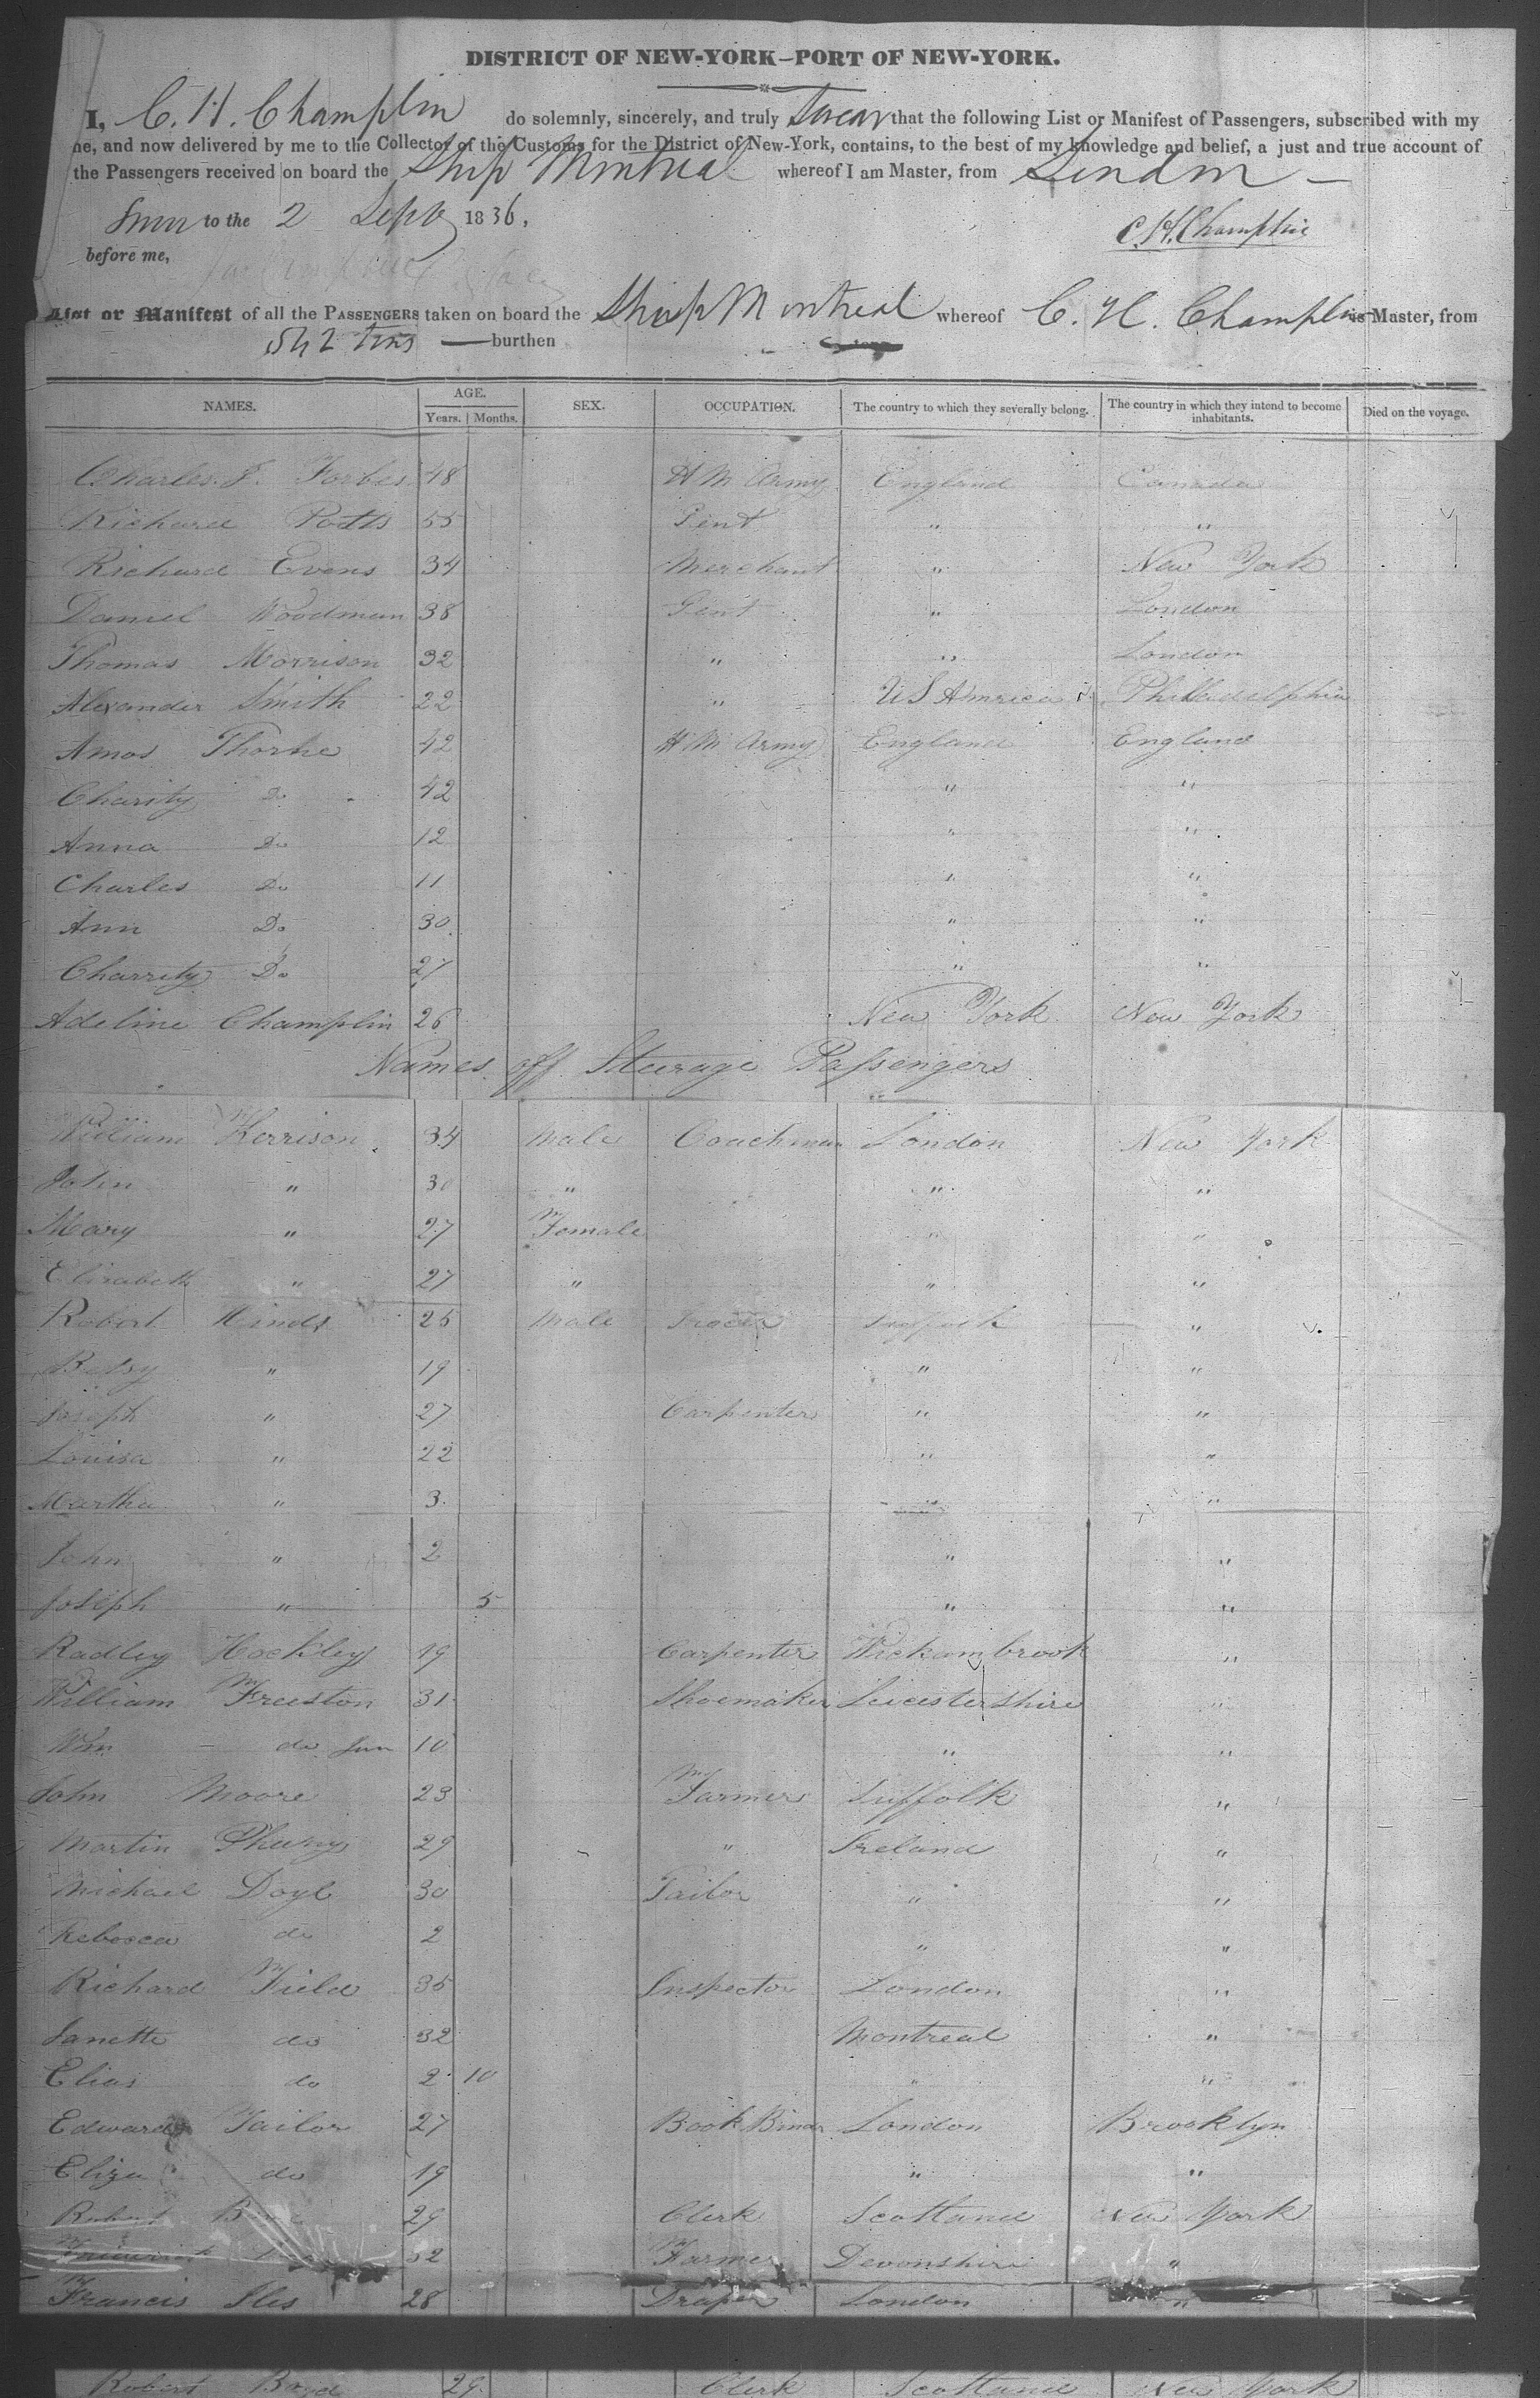 DISTRICT OF NEW-YORK—PORT OF NEW-YORK.
I, C. H. Champlin do solemnly, sincerely, and truly swear that the following List or Manifest of Passengers, subscribed with my
ne, and now delivered by me to the Collector of the Customs for the District of New-York, contains, to the best of my knowledge and belief, a just and true account of
the Passengers received on board the Ship Montreal whereof I am Master, from London —
Sworn to the 2 Sept 1836,
C. H. Champlin
before me,
List or Manifest of all the PASSENGERS taken on board the Ship Montreal whereof C. H. Champlin is Master, from
542 tons — burthen
NAMES. AGE. Years. Months. SEX. OCCUPATION. The country to which they severally belong. The country in which they intend to become inhabitants. Died on the voyage.
Charles J. Forbes 48 H M Army England Canada
Richard Potts 55 Gent " "
Richard Evens 34 Merchant " New York
Daniel Woodman 38 Gent " London
Thomas Morrison 32 " " London
Alexander Smith 22 " U S Amrica Philladelphia
Amos Thorne 42 H M Army England England
Charity Do 42 " "
Anna Do 12 " "
Charles Do 11 " "
Ann Do 30 " "
Charrity Do 27 " "
Adeline Champlin 26 New York New York
Names off Steerage Passengers
William Kerrison 34 Male Coachman London New York
John " 30 " " "
Mary " 27 Female " "
Elizabeth " 27 " " "
Robert Hinds 25 Male Grocer Suffolk "
Betsy " 19 " "
Joseph " 27 Carpenter " "
Louisa " 22 " "
Martha " 3 " "
John " 2 " "
Joseph " 5 " "
Radley Hockley 19 Carpenter Wickambrook "
William Freeston 31 Shoemaker Leicestershire "
Wm do Jun 10 " "
John Moore 23 Farmer Suffolk "
Martin 29 " Ireland "
Michael Doyl 30 Tailor " "
Rebecca do 2 " "
Richard Field 35 Inspector London "
Janette do 32 Montreal "
Elias do 2 10 " "
Edward Tailor 27 Book Binder London Brooklyn
Eliza do 19 " "
Robert 29 Clerk Scotland New York
32 Farmer Devonshire "
Francis Iles 28 Draper London "
Robert Boyd 29 Clerk Scotland New York